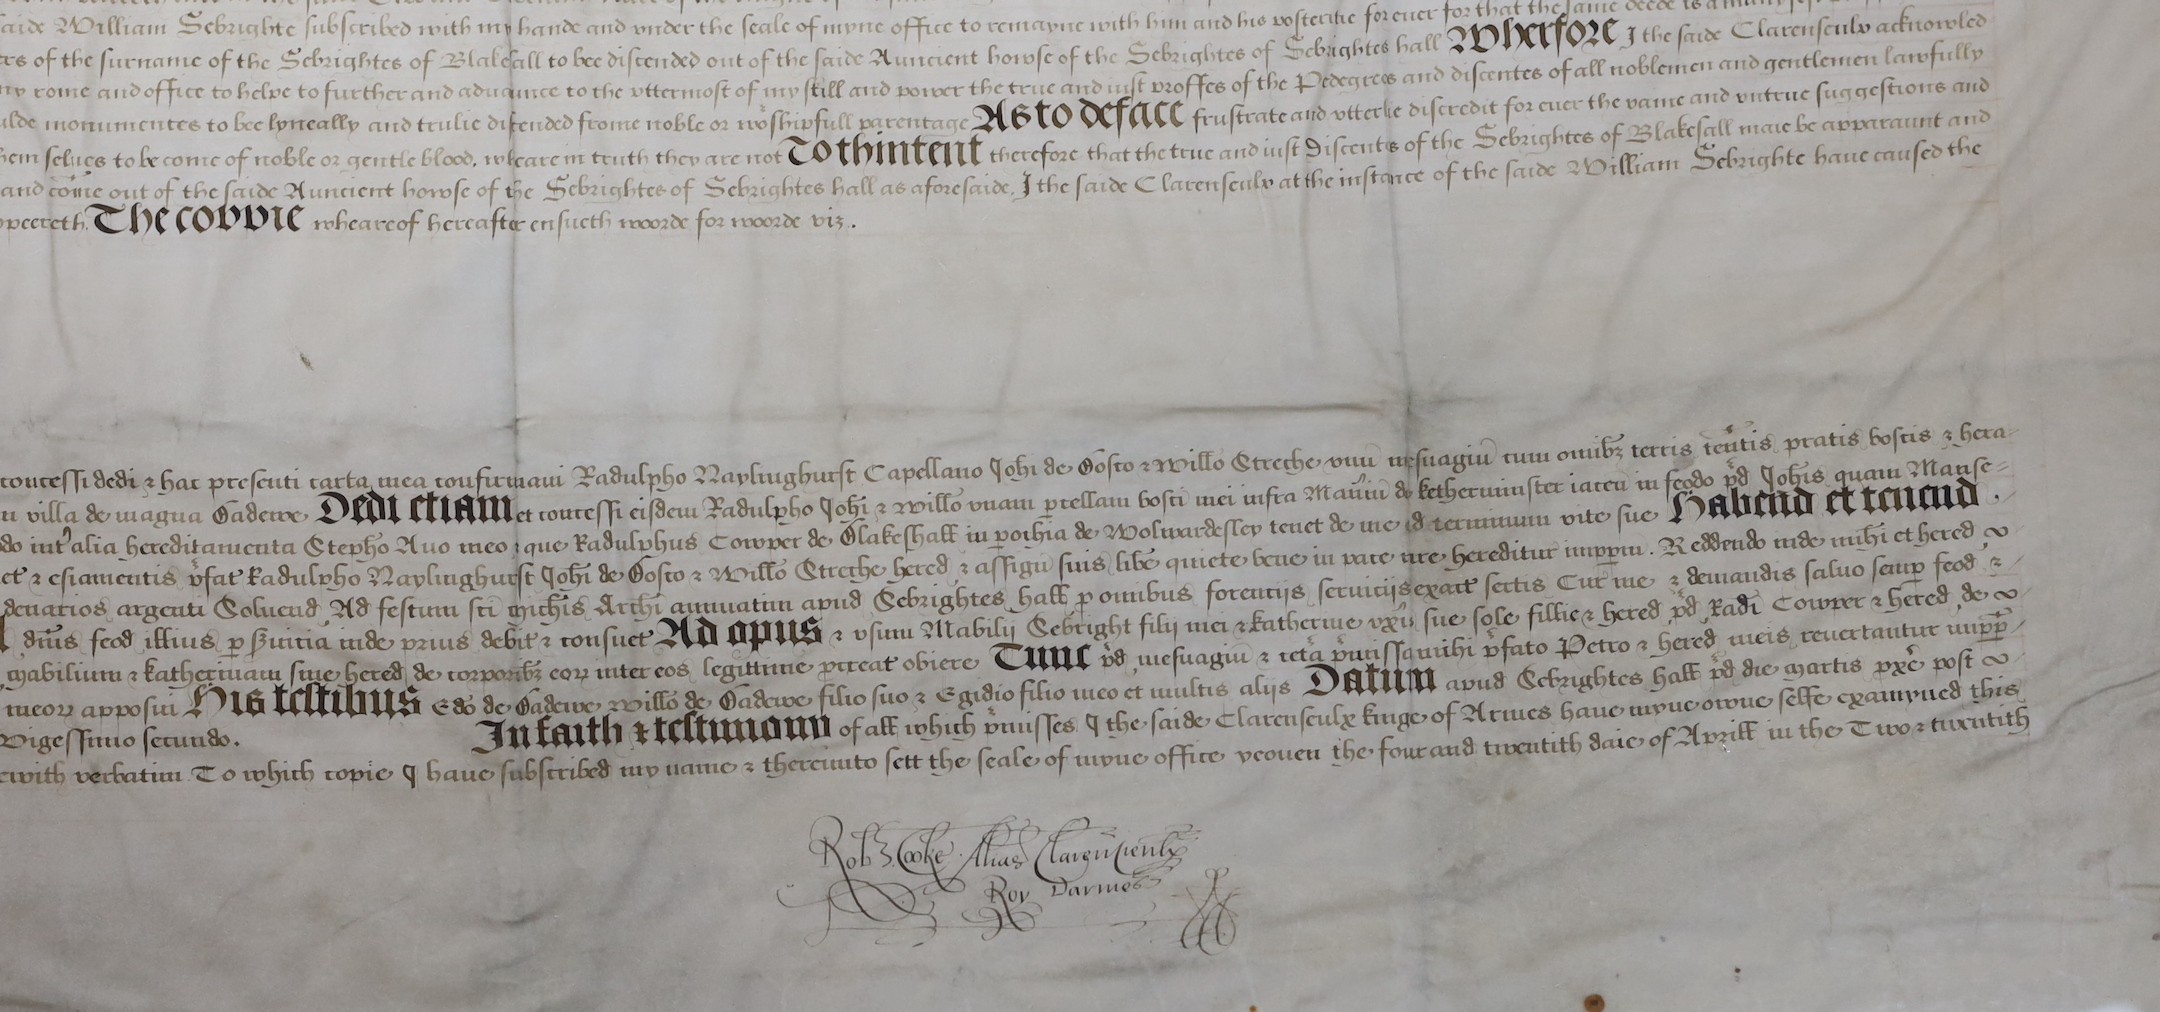 saide William Sebrighte subscribed with my hande and vnder the seale of myne office to remayne with him and his posteritie for euer for that the same deede is
ers of the surname of the Sebrightes of Blakesall to bee discended out of the saide Auncient howse of the Sebrightes of Sebrightes hall Wherfore I the saide Clarenseulx acknowled
my rome and office to helpe to further and aduaunce to the vttermost of my skill and power the true and iust proffes of the Pedegrees and discentes of all noblemen and gentlemen lawfully
ulde monumentes to bee lyneally and trulie discended frome noble or woshipfull parentage As to deface frustrate and vtterlie discredit for euer the vaine and vntrue suggestions and
hem selues to be come of noble or gentle blood, wheare in truth they are not To thintent therefore that the true and iust Discentes of the Sebrightes of Blakesall maie be apparaunt and
and come out of the saide Auncient howse of the Sebrightes of Sebrightes hall as aforesaide, I the saide Clarenseulx at the instance of the saide William Sebrighte haue caused the
ppeereth. The coppie wheareof hereafter ensueth woorde for woorde viz.
concessi dedi & hac presenti carta mea confirmaui Radulpho Naylinghurst Capellano Johi de Gosto & Willo Streche vnu mesuagiu cum omibz terris tentis pratis boscis & hera
n villa de magna Badewe Dedi etiam et concessi eisdem Radulpho Johi & Willo vnam pcellam bosci mei infra Maniu de ketherminster iacen in feodo pd Johis quam Manse=
do int alia hereditamenta Stepho Auo meo & que Radulphus Cowper de Blakeshall in poihia de Wolwardesley tenet de me ad terminum vite sue Habend et tenend.
et & esiamentis pfat Radulpho Naylinghurst Johi de Gosto & Willo Streche hered & assign suis libe quiete bene in pace iure hereditar imppm. Reddendo inde mihi et hered
denarios argenti Soluend Ad festum sci Michis Archi annuatim apud Sebrightes hall p omibus forenciis seruiciis exact sectis Cur me & demandis saluo semp feod &
dnis feod illius p suicia inde prius debit & consuet Ad opus & vsum Mabilij Sebright filij mei & katherine vxis sue sole fillie & hered pd Radi Cowper & hered de
mabilium & katherinam sine hered de corporibz eor inter eos legittime pcreat obiere Tunc pd mesuagiu & cetera pmissa mihi pfato Petro & hered meis reuertantur impp
meor apposui His testibus Edo de Badewe Willo de Badewe filio suo & Egidio filio meo et multis alijs Datum apud Sebrightes hall pd die martis pxe post
Vigessimo secundo. In faith & testimony of all which pmisses I the saide Clarenseulx kinge of Armes haue myne owne selfe examyned this
with verbatim To which copie I haue subscribed my name & thereunto sett the seale of myne office yeouen the four and twentith daie of Aprill in the Two & twentith
Robt Cooke Alias Clarencieulx
Roy Darmes